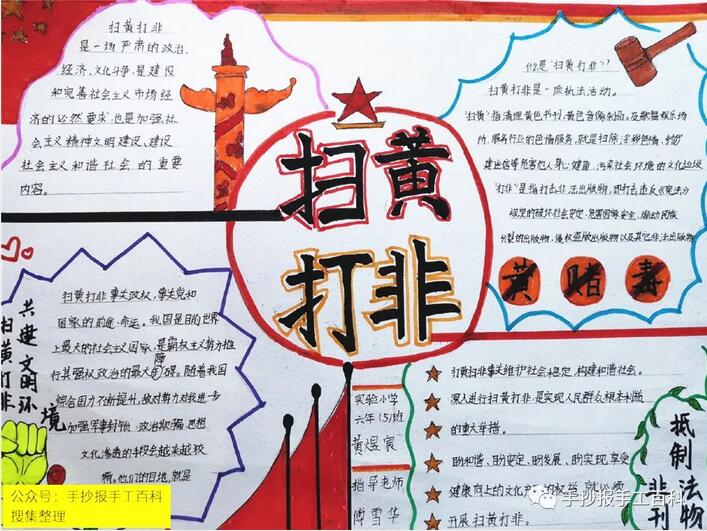 扫黄打非
是一场严肃的政治、
经济、文化斗争,是建设
和完善社会主义市场经
济的必然要求,也是加强社
会主义精神文明建设、建设
社会主义和谐社会的重要
内容。
扫黄
打非
什么是“扫黄打非”?
扫黄打非是一项执法活动。
“扫黄”指清理黄色书刊、黄色音像制品、及歌舞娱乐场
所、服务行业的色情服务,就是扫除淫秽色情、
建迷信等危害他人身心健康、污染社会环境的文化垃圾
“打非”是指打击非法出版物,即打击违反《宪法》
规定的破坏社会安定、危害国家安全、煽动民族
分裂的出版物,侵权盗版出版物以及其他非法出版物
黄 赌 毒
共建文明环境
扫黄打非
扫黄打非事关政权、事关党和
国家的前途、命运。我国是目前世界
上最大的社会主义国家,是霸权主义势力推
行其强权政治的最大障碍。随着我国
综合国力不断提升,敌对势力对我进一步
加强军事封锁、政治欺骗、思想
文化渗透的手段会越来越狡
猾。他们的目地,就是
实验小学
六年(5)班
黄煜宸
指导老师
傅雪华
打黄扫非事关维护社会稳定,构建和谐社会。
深入进行扫黄打非,是实现人民群众根本利益
的重大举措。
盼和谐、盼安定、盼发展、盼实现,享受
健康向上的文化产品的权益,就必须
开展扫黄打非。
抵制法物
非刊
公众号:手抄报手工百科
搜集整理
手抄报手工百科